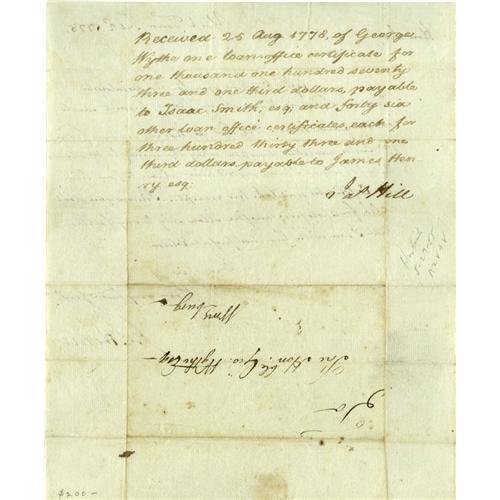 Received 25 Aug 1778, of George
Wythe one loan-office certificate for
one thousand one hundred seventy
three and one third dollars, payable
to Isaac Smith, esq; and forty six
other loan office certificates, each for
three hundred thirty three and one
third dollars, payable to James Hen
ry esq:
Jas Hill
To
The Hon: ble Geo: Wythe Esq
Wms
burg
$2.00-